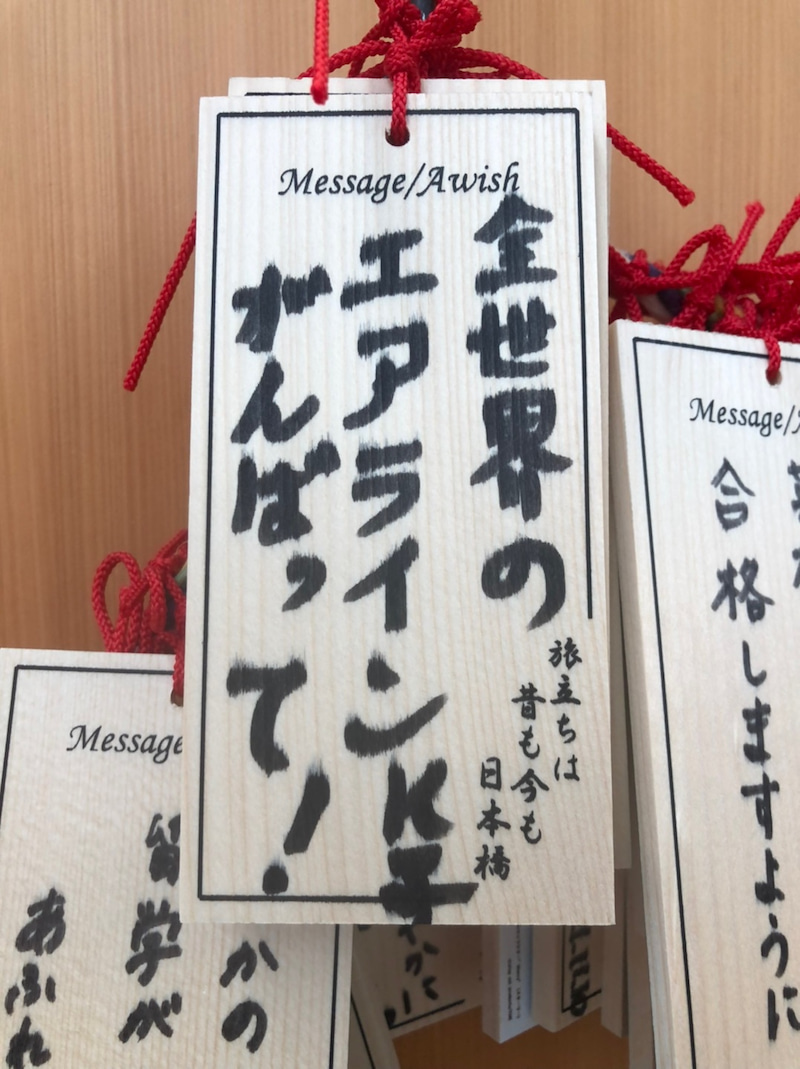 Message/Awish
全世界の
エアライン
がんばって!
K子
旅立ちは
昔も今も
日本橋
Message/
合格しますように
Message
かの
留学が
あふれ